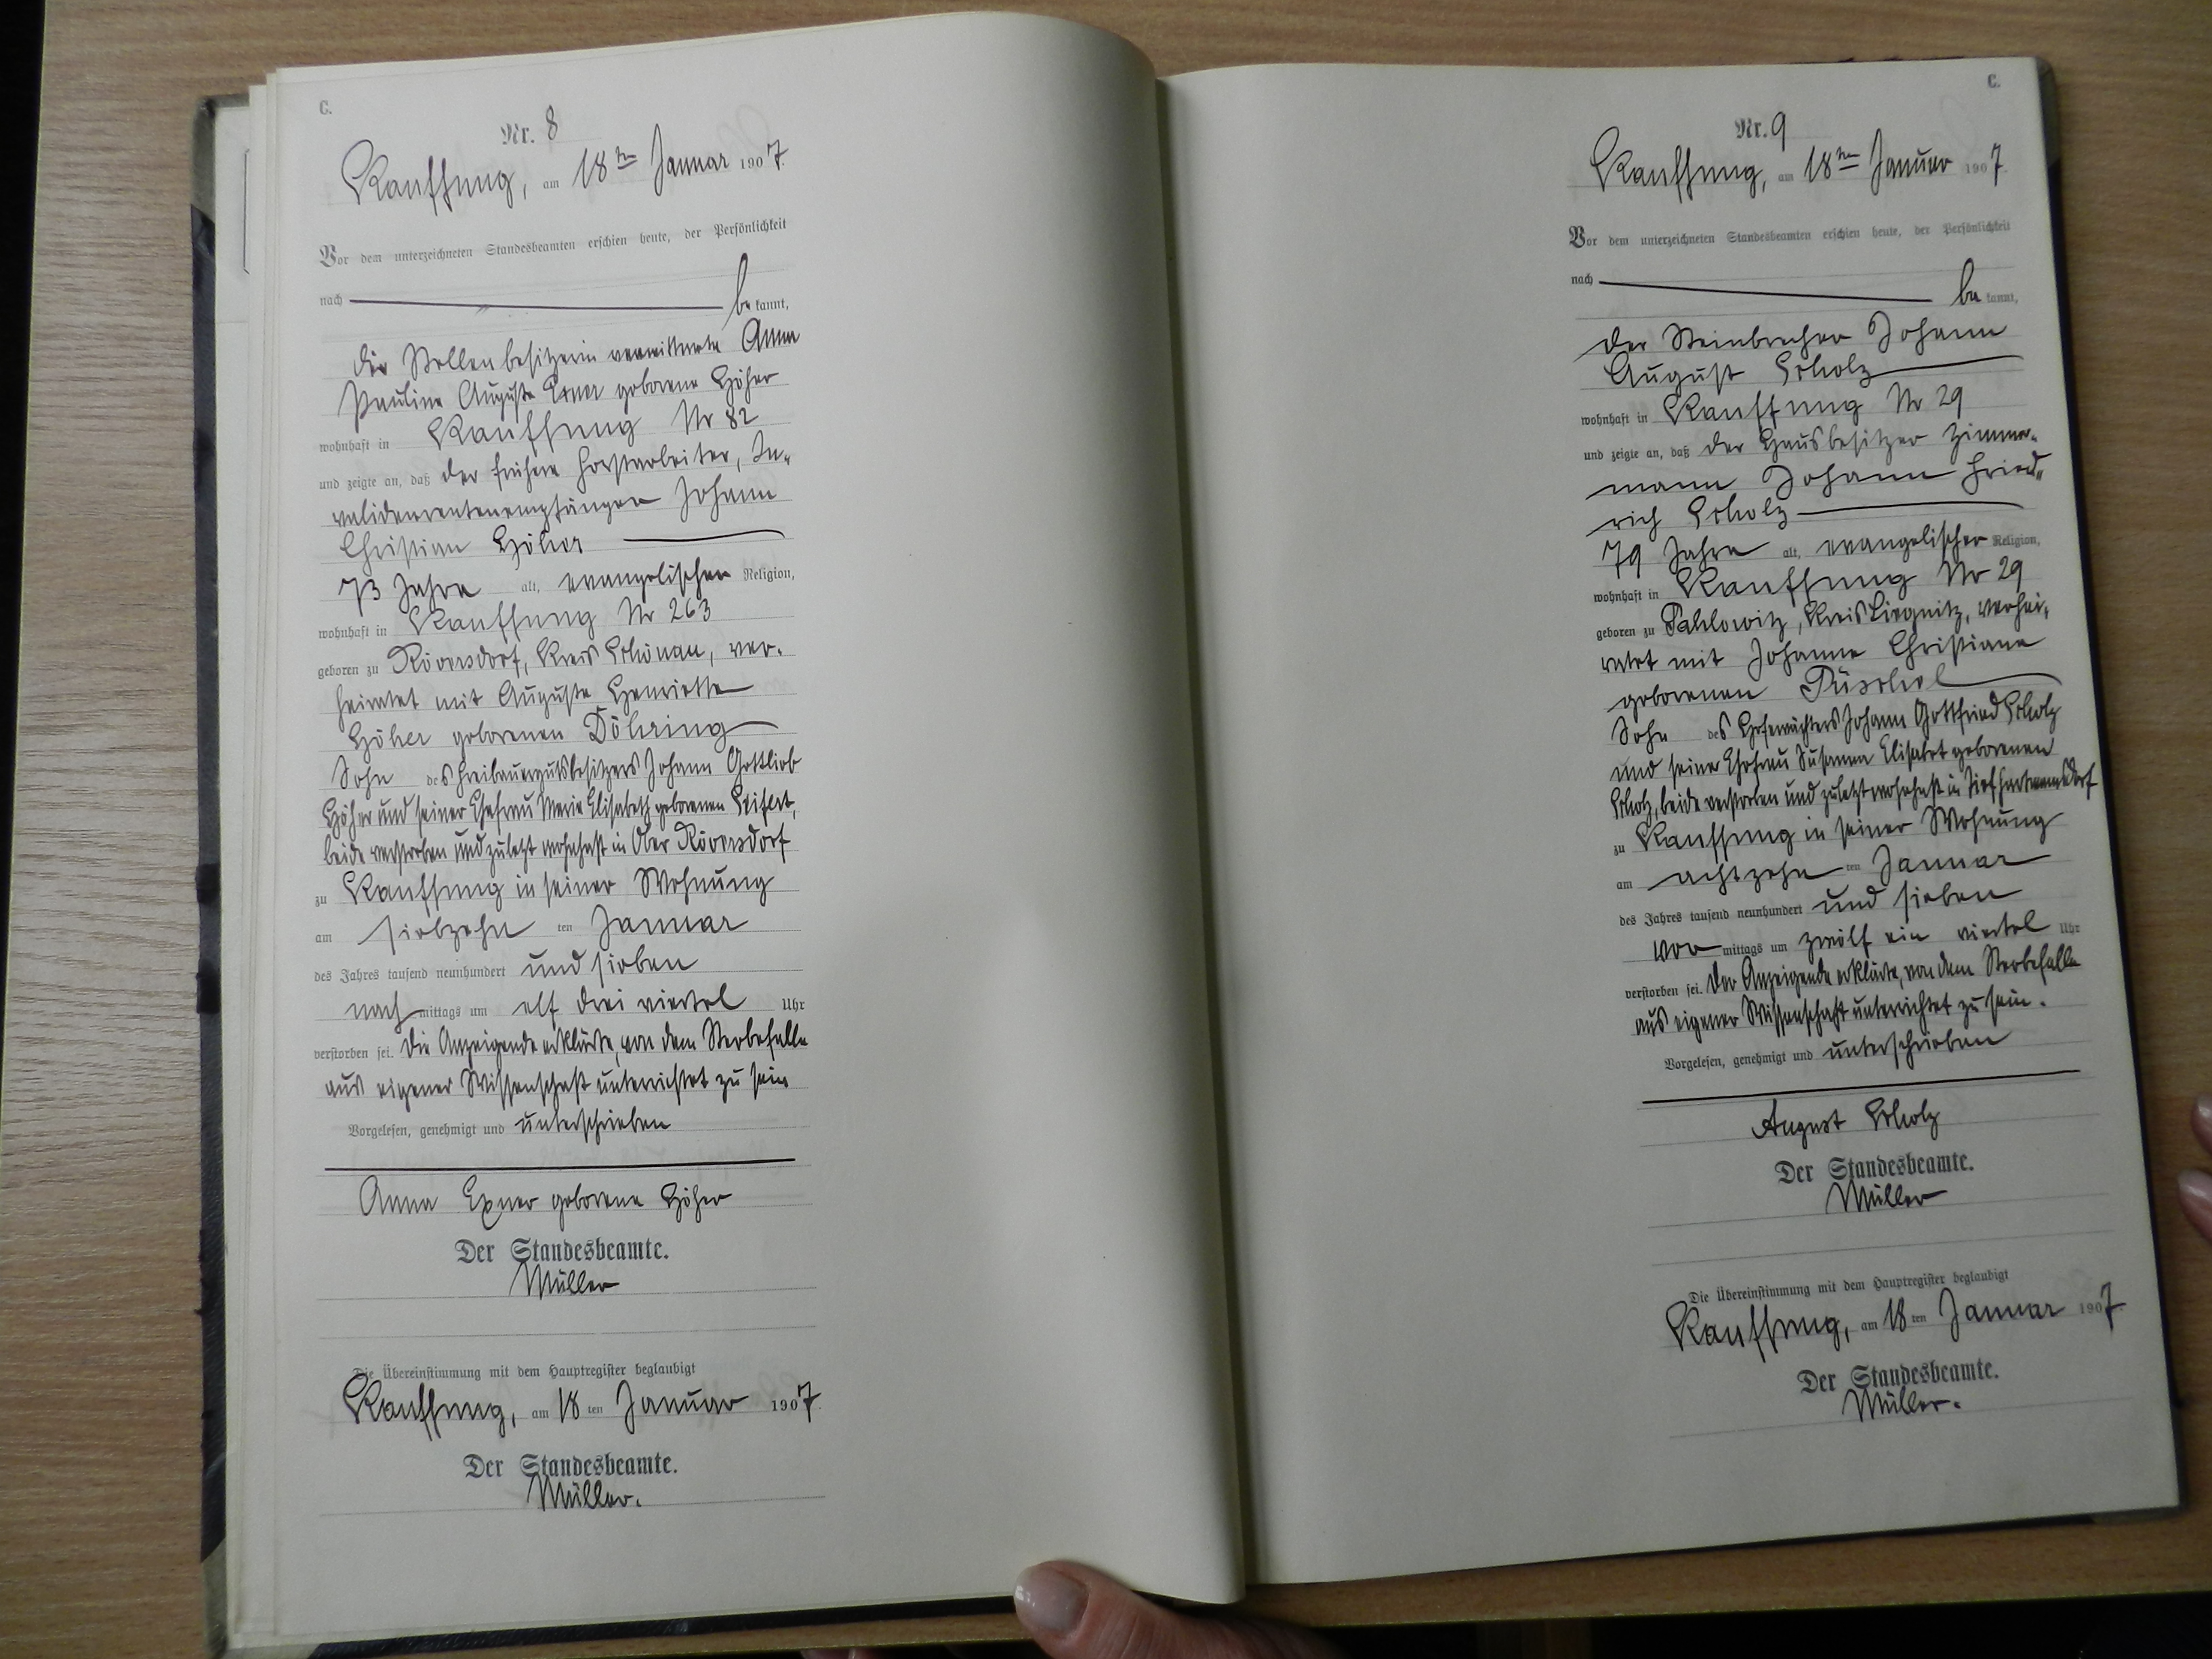 C.
Nr. 8
Kauffung, am 18ten Januar 1907.
Vor dem unterzeichneten Standesbeamten erschien heute, der Persönlichkeit
nach be kannt,
die Stellenbesitzerin verwittwete Anna
Pauline Auguste Exner geborene Höher
wohnhaft in Kauffung Nr 82
und zeigte an, daß der frühere Forstarbeiter, In-
validenrentenempfänger Johann
Christian Höher
73 Jahre alt, evangelischer Religion,
wohnhaft in Kauffung Nr 263
geboren zu Röversdorf, Kreis Schönau, ver-
heiratet mit Auguste Henriette
Höher geborenen Döhring
Sohn des Freibauergutsbesitzers Johann Gottlieb
Höher und seiner Ehefrau Marie Elisabeth geborenen Seifert,
beide verstorben und zuletzt wohnhaft in Ober Röversdorf
zu Kauffung in seiner Wohnung
am siebzehn ten Januar
des Jahres tausend neunhundert und sieben
nach mittags um elf drei viertel Uhr
verstorben sei. Die Anzeigende erklärte, von dem Sterbefalle
aus eigener Wissenschaft unterrichtet zu sein
Vorgelesen, genehmigt und unterschrieben
Anna Exner geborene Höher
Der Standesbeamte.
Müller
Die Übereinstimmung mit dem Hauptregister beglaubigt
Kauffung, am 18 ten Januar 1907.
Der Standesbeamte.
Müller.
C.
Nr. 9
Kauffung, am 18ten Januar 1907.
Vor dem unterzeichneten Standesbeamten erschien heute, der Persönlichkeit
nach be kannt,
der Steinbrecher Johann
August Scholz
wohnhaft in Kauffung Nr 29
und zeigte an, daß der Hausbesitzer Zimmer-
mann Johann Fried-
rich Scholz
79 Jahre alt, evangelischer Religion,
wohnhaft in Kauffung Nr 29
geboren zu Pahlowitz, Kreis Liegnitz, verhei-
ratet mit Johanne Christiane
geborenen Püschel
Sohn des Hofewächters Johann Gottfried Scholz
und seiner Ehefrau Susanna Elisabet geborenen
Scholz, beide verstorben und zuletzt wohnhaft in Tiefhartmannsdorf
zu Kauffung in seiner Wohnung
am achtzehn ten Januar
des Jahres tausend neunhundert und sieben
vor mittags um zwölf ein viertel Uhr
verstorben sei. Der Anzeigende erklärte, von dem Sterbefalle
aus eigener Wissenschaft unterrichtet zu sein.
Vorgelesen, genehmigt und unterschrieben
August Scholz
Der Standesbeamte.
Müller
Die Übereinstimmung mit dem Hauptregister beglaubigt
Kauffung, am 18 ten Januar 1907.
Der Standesbeamte.
Müller.